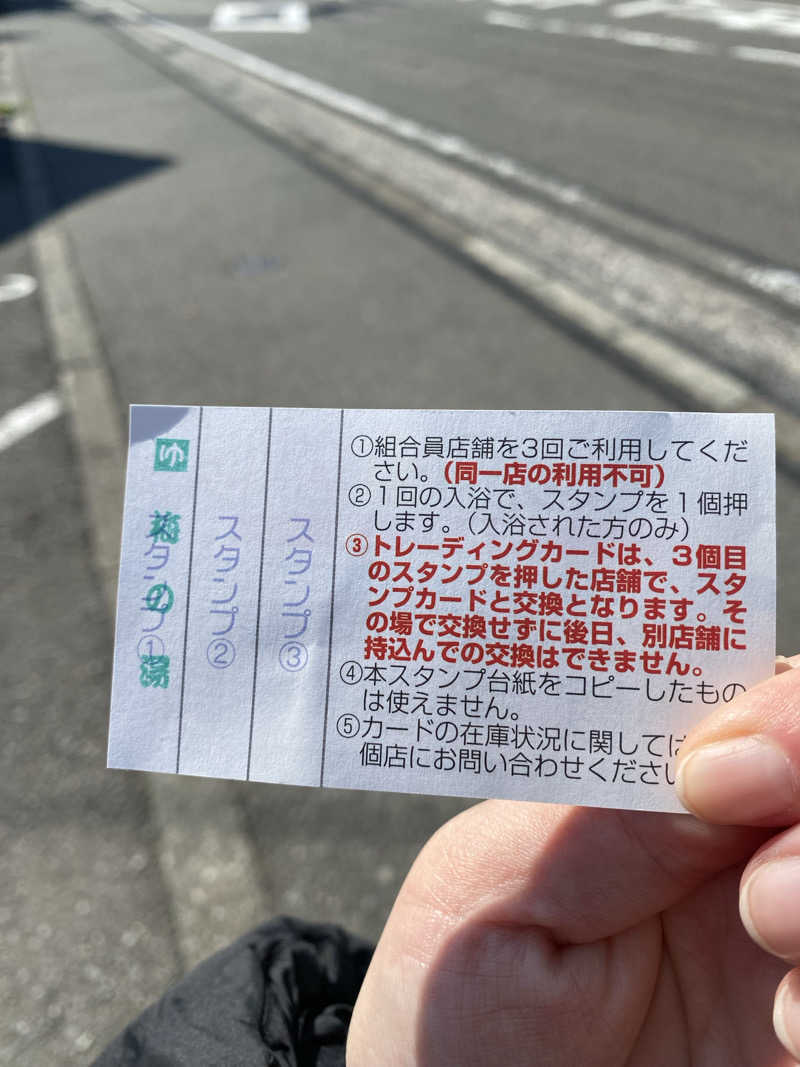 ①組合員店舗を3回ご利用してくだ
さい。（同一店の利用不可）
②１回の入浴で、スタンプを１個押
します。（入浴された方のみ）
③トレーディングカードは、３個目
のスタンプを押した店舗で、スタ
ンプカードと交換となります。そ
の場で交換せずに後日、別店舗に
持込んでの交換はできません。
④本スタンプ台紙をコピーしたもの
は使えません。
⑤カードの在庫状況に関しては
個店にお問い合わせくださ
スタンプ③
スタンプ②
スタンプ①
ゆ
の湯